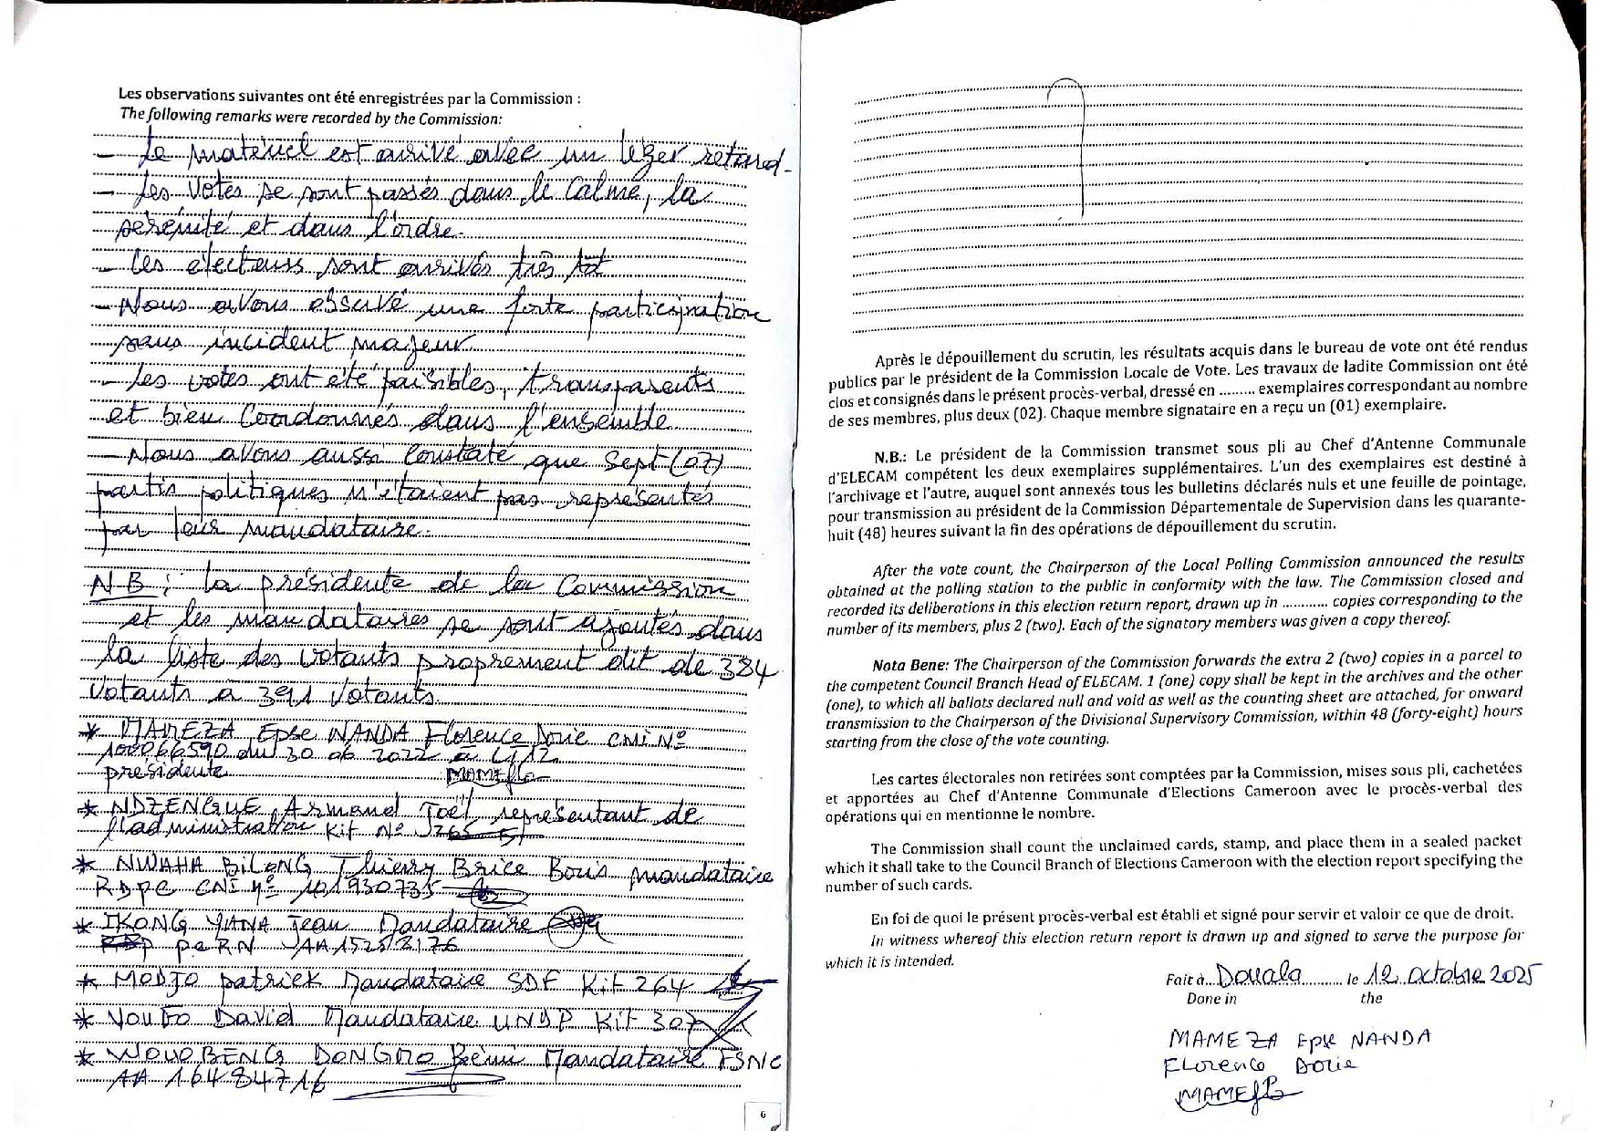 Les observations suivantes ont été enregistrées par la Commission :
The following remarks were recorded by the Commission:
– Le matériel est arrivé avec un léger retard.
– Les votes se sont passés dans le calme, la
sérénité et dans l'ordre.
– Les électeurs sont arrivés très tôt
– Nous avons observé une forte participation
sans incident majeur
– Les votes ont été paisibles, transparents
et bien coordonnés dans l'ensemble.
– Nous avons aussi constaté que sept (07)
partis politiques n'étaient pas représentés
par leur mandataire.
NB : La présidente de la Commission
et les mandataires se sont ajoutés dans
la liste des votants proprement dit de 384
votants à 391 votants.
* MAMEZA Epse NANDA Florence Dorie CNI N°
100066590 du 30 06 2022 à LT12
présidente MAMEflo
* NDZENGUE Armand Joël représentant de
l'administration Kit N° 265
* NWAHA BILONG Thierry Brice Boris mandataire
RDPC CNI N° 101930735
* IKONG YANA Jean Mandataire
PCRN AA15252176
* MODJO Patrick Mandataire SDF Kit 264
* YOUTO David Mandataire UNDP Kit 307
* WOUOBENG DONGMO Rémi Mandataire FSNC
AA 16484716
6
Après le dépouillement du scrutin, les résultats acquis dans le bureau de vote ont été rendus
publics par le président de la Commission Locale de Vote. Les travaux de ladite Commission ont été
clos et consignés dans le présent procès-verbal, dressé en ......... exemplaires correspondant au nombre
de ses membres, plus deux (02). Chaque membre signataire en a reçu un (01) exemplaire.
N.B.: Le président de la Commission transmet sous pli au Chef d'Antenne Communale
d'ELECAM compétent les deux exemplaires supplémentaires. L'un des exemplaires est destiné à
l'archivage et l'autre, auquel sont annexés tous les bulletins déclarés nuls et une feuille de pointage,
pour transmission au président de la Commission Départementale de Supervision dans les quarante-
huit (48) heures suivant la fin des opérations de dépouillement du scrutin.
After the vote count, the Chairperson of the Local Polling Commission announced the results
obtained at the polling station to the public in conformity with the law. The Commission closed and
recorded its deliberations in this election return report, drawn up in ........... copies corresponding to the
number of its members, plus 2 (two). Each of the signatory members was given a copy thereof.
Nota Bene: The Chairperson of the Commission forwards the extra 2 (two) copies in a parcel to
the competent Council Branch Head of ELECAM. 1 (one) copy shall be kept in the archives and the other
(one), to which all ballots declared null and void as well as the counting sheet are attached, for onward
transmission to the Chairperson of the Divisional Supervisory Commission, within 48 (forty-eight) hours
starting from the close of the vote counting.
Les cartes électorales non retirées sont comptées par la Commission, mises sous pli, cachetées
et apportées au Chef d'Antenne Communale d'Elections Cameroon avec le procès-verbal des
opérations qui en mentionne le nombre.
The Commission shall count the unclaimed cards, stamp, and place them in a sealed packet
which it shall take to the Council Branch of Elections Cameroon with the election report specifying the
number of such cards.
En foi de quoi le présent procès-verbal est établi et signé pour servir et valoir ce que de droit.
In witness whereof this election return report is drawn up and signed to serve the purpose for
which it is intended.
Fait à Douala le 12 octobre 2025
Done in the
MAMEZA Epse NANDA
Florence Dorie
7